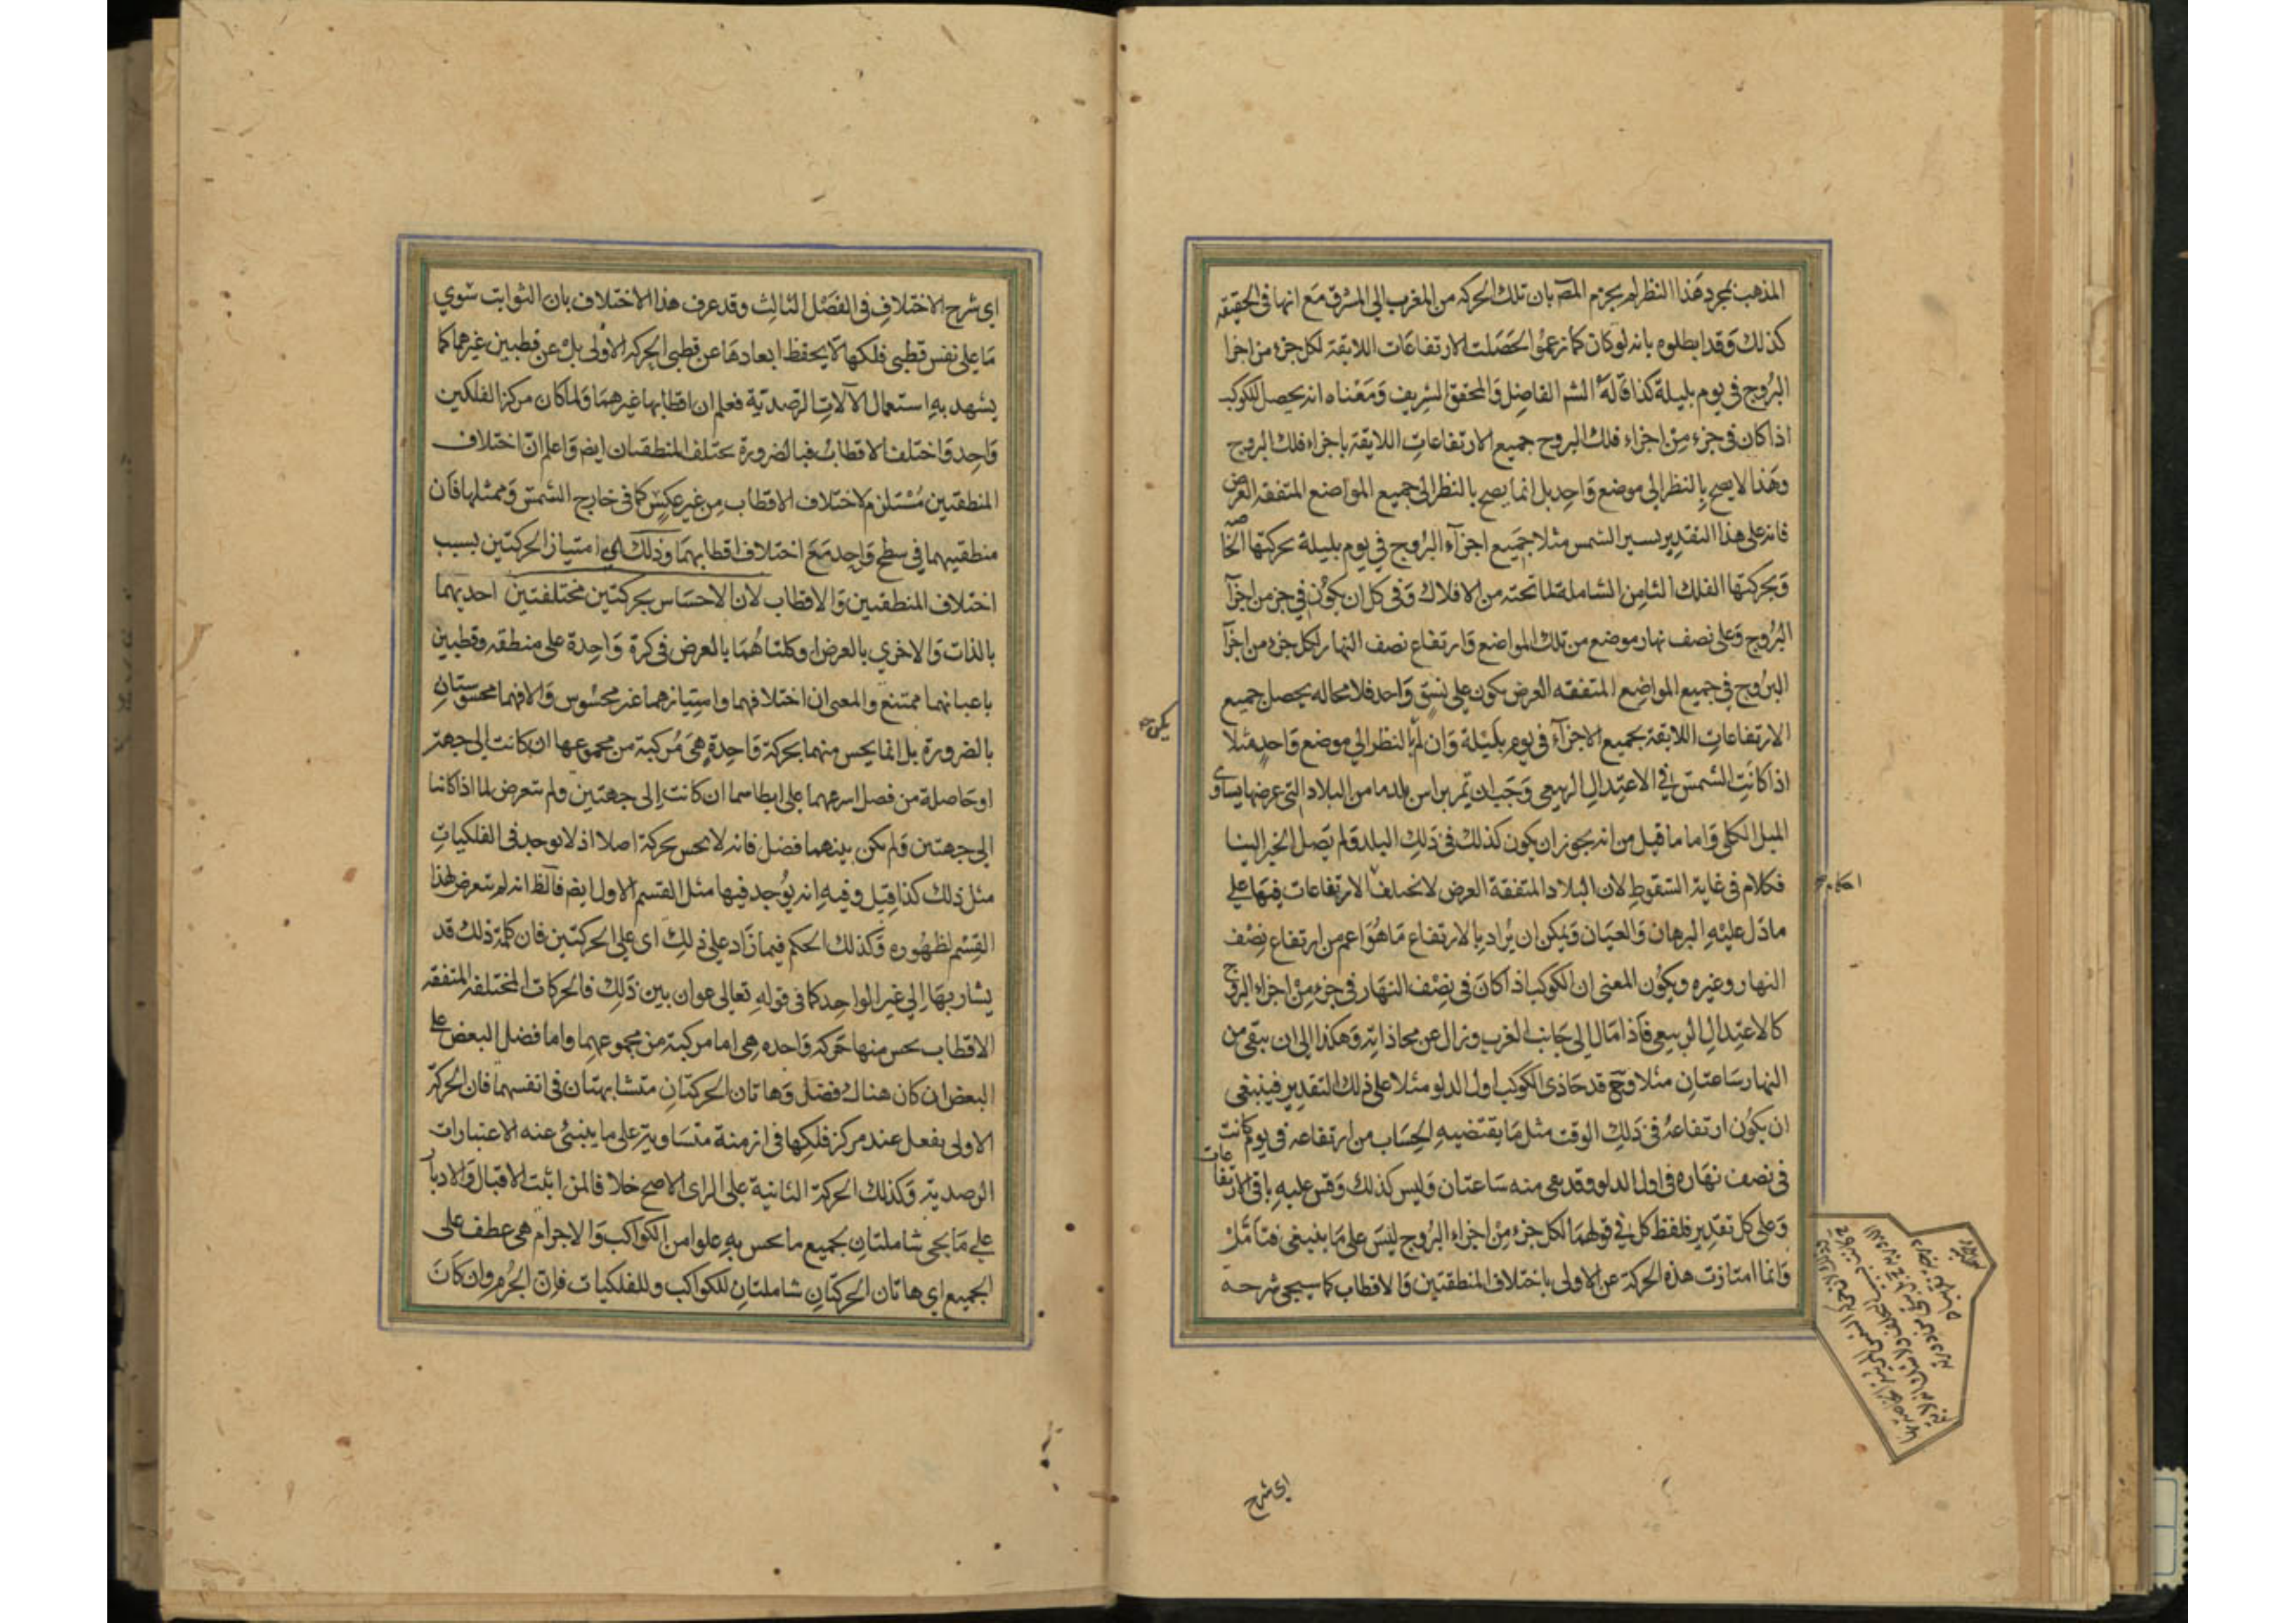 المذهب بمجرد هذا النظر لم يجزم المصـ بان تلك الحركه من المغرب الى المشرق مع انها فى الحقيقه
كذلك وقد ابطلوه بانه لو كان كما زعموا لحصلت الارتفاعات اللايقة لكل جزء من اجزا
البروج فى يوم بليلة كذا قاله الشـ الفاضل والمحقق الشريف ومعناه انه يحصل للكوكب
اذا كان فى جزء من اجزاء فلك البروج جميع الارتفاعات اللايقة باجزاء فلك البروج
وهذا لا يصح بالنظر الى موضع واحد بل انما يصح بالنظر الى جميع المواضع المتفقه العرض
فانه على هذا التقدير يسير الشمس مثلا جميع اجزآء البروج في يوم بليلة بحركتها الخاصه
وبحركتها الفلك الثامن الشاملة لما تحته من الافلاك وفى كل ان يكون فى جزء من اجزآ
البروج وعلى نصف نهار موضع من تلك المواضع وارتفاع نصف النهار لكل جزء من اجزآ
البروج فى جميع المواضع المتفقه العرض يكون على نسق واحد فلا محاله يحصل جميع
الارتفاعات اللايقة بجميع الاجزآء فى يوم بليلة وان لم بالنظر الى موضع واحد مثلا
يكن صح
اذا كانت الشمس فى الاعتدال الربيعى وجب ان تمر براس بلد ما من البلاد التى عرضها يساوى
الميل الكلى واما ما قيل من انه يجوز ان يكون كذلك فى ذلك البلد ولم يصل الخبر الينا
فكلام فى غاية السقوط لان البلاد المتفقة العرض لا تختلف الارتفاعات فيها على
احكام صح
ما دل عليه البرهان والعيان ويمكن ان يراد بالارتفاع ما هو اعم من ارتفاع نصف
النهار وغيره ويكون المعنى ان الكوكب اذا كان فى نصف النهار فى جزء من اجزاء البروج
كالاعتدال الربيعى فاذا مال الى جانب الغرب وزال عن محاذاته وهكذا الى ان يبقى من
النهار ساعتان مثلا وقع قد حاذى الكوكب اول الدلو مثلا على ذلك التقدير فينبغى
ان يكون ارتفاعه فى ذلك الوقت مثل ما يقتضيه الحساب من ارتفاعه فى يوم كانت
فى نصف نهاره فى اول الدلو وقد بقى منه ساعتان وليس كذلك وقس عليه باقى الارتفاعات
وعلى كل تقدير فلفظ كل فى قولهما لكل جزء من اجزاء البروج ليس على ما ينبغى فتامل
وانما امتازت هذه الحركة عن الاولى باختلاف المنطقتين والاقطاب كما سيجى شرحه
اى شرح
اى شرح الاختلاف فى الفصل الثالث وقد عرف هذا الاختلاف بان الثوابت سوي
ما على نفس قطبى فلكها لا يحفظ ابعادها عن قطبى الحركه الاولى بل عن قطبين غيرهما كما
يشهد به استعمال الآلات الرصدية فعلم ان اقطابها غيرهما ولما كان مركز الفلكين
واحد واختلف الاقطاب فبالضرورة يختلف المنطقتان ايضـ واعلم ان اختلاف
المنطقتين مستلزم لاختلاف الاقطاب من غير عكس كما فى خارج الشمس وممثلها فان
منطقتيهما فى سطح واحد مع اختلاف اقطابهما وذلك اى امتياز الحركتين بسبب
اختلاف المنطقتين والاقطاب لان الاحساس بحركتين مختلفتين احديهما
بالذات والاخرى بالعرض او كلتاهما بالعرض فى كرة واحدة على منطقه وقطبين
باعيانهما ممتنع والمعنى ان اختلافهما وامتيازهما غير محسوس والا فهما محسوستان
بالضرورة بل انما يحس منهما بحركة واحدة هى مركبة من مجموعها ان كانت الى جهة
او حاصلة من فصل اسرعهما على ابطاهما ان كانت الى جهتين ولم يتعرض لما اذا كانتا
الى جهتين ولم يكن بينهما فضل فانه لا يحس بحركة اصلا اذ لا يوجد فى الفلكيات
مثل ذلك كذا قيل وفيه انه يوجد فيها مثل القسم الاول ايضـ فالظ انه لم يتعرض لهذا
القسم لظهوره وكذلك الحكم فيما زاد على ذلك اى على الحركتين فان كلمة ذلك قد
يشار بها الى غير الواحد كما فى قوله تعالى عوان بين ذلك فالحركات المختلفة المتفقه
الاقطاب يحس منها حركه واحده هى اما مركبة من مجموعهما واما فضل البعض على
البعض ان كان هناك فضل وهاتان الحركتان متشابهتان فى انفسهما فان الحركة
الاولى يفعل عند مركز فلكها فى ازمنة متساوية على ما ينبئ عنه الاعتبارات
الرصدية وكذلك الحركة الثانية على الراى الاصح خلافا لمن اثبت الاقبال والادبار
على ما يجى شاملتان لجميع ما يحس به علوا من الكواكب والاجرام هى عطف على
الجميع اى هاتان الحركتان شاملتان للكواكب وللفلكيات فان الجرم وان كان